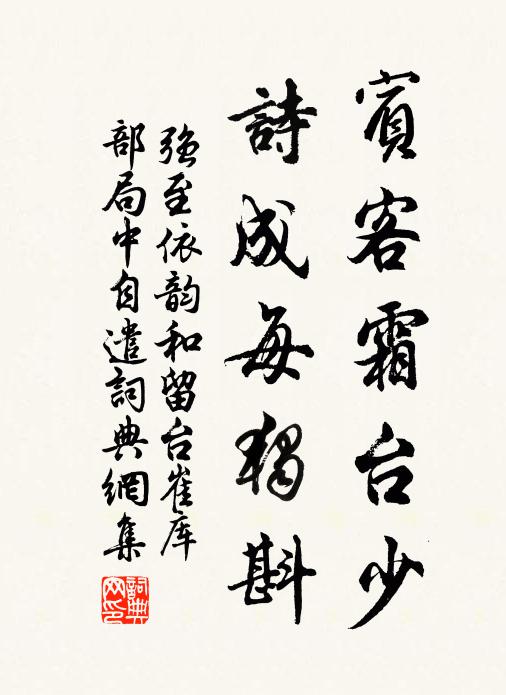 賓客霜台少
詩成每獨斟
強至依韵和留台崔库
部局中自遣詞典網集
詞典
网印